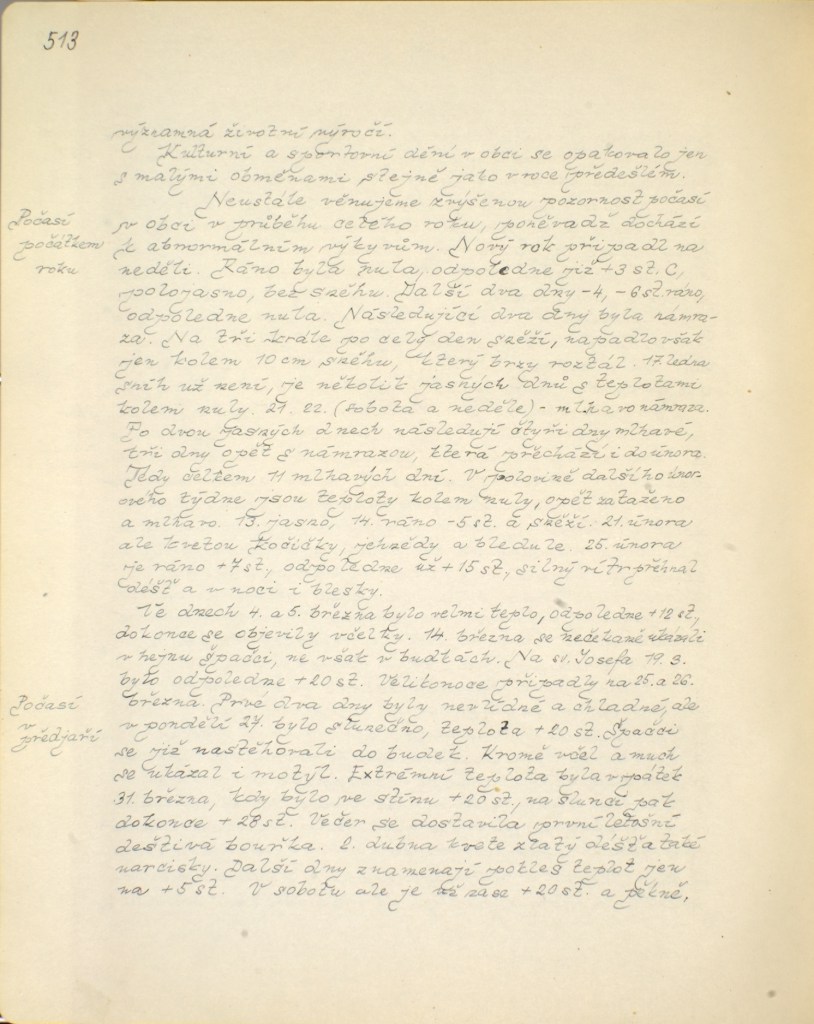 513
významná životní výročí.
Kulturní a sportovní dění v obci se opakovalo jen
s malými obměnami stejně jako v roce předešlém.
Neustále věnujeme zvýšenou pozornost počasí
Počasí
počátkem
roku
v obci v průběhu celého roku, poněvadž dochází
k abnormálním výkyvům. Nový rok připadl na
neděli. Ráno byla nula, odpoledne již +3 st. C,
polojasno, bez sněhu. Další dva dny -4, -6 st. ráno,
odpoledne nula. Následující dva dny byla námra-
za. Na tři krále po celý den sněží, napadlo však
jen kolem 10 cm sněhu, který brzy roztál. 17. ledna
sníh už není, je několik jasných dnů s teplotami
kolem nuly. 21. 22. (sobota a neděle) - mlhavo námraza.
Po dvou jasných dnech následují čtyři dny mlhavé,
tři dny opět s námrazou, která přechází i do února.
Tedy celkem 11 mlhavých dní. V polovině dalšího únor-
ového týdne jsou teploty kolem nuly, opět zataženo
a mlhavo. 13. jasno, 14. ráno -5 st. a sněží. 21. února
ale kvetou kočičky, jehnědy a bledule. 25. února
je ráno +7 st., odpoledne už +15 st., silný vítr přihnal
déšť a v noci i blesky.
Ve dnech 4. a 5. března bylo velmi teplo, odpoledne +12 st.,
dokonce se objevily včelky. 14. března se nečekaně ukázali
v hejnu špačci, ne však v budkách. Na sv. Josefa 19. 3.
bylo odpoledne +20 st. Velikonoce připadly na 25. a 26.
Počasí
v
předjaří
března. Prvé dva dny byly nevlídné a chladné, ale
v pondělí 27. bylo slunečno, teplota +20 st. Špačci
se již nastěhovali do budek. Kromě včel a much
se ukázal i motýl. Extrémní teplota byla v pátek
31. března, kdy bylo ve stínu +20 st., na slunci pak
dokonce +28 st. Večer se dostavila první letošní
deštivá bouřka. 2. dubna kvete zlatý déšť a také
narcisky. Další dny znamenají pokles teplot jen
na +5 st. V sobotu ale je už zase +20 st. a pěkně,